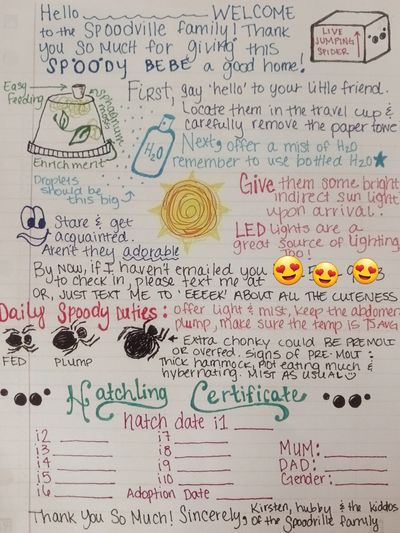 Hello WELCOME
to the Spoodville family! Thank
you So Much for giving this
SPOODY BEBE a good home!
LIVE
JUMPING
SPIDER
Easy
Feeding
sphagnum
moss
Enrichment
Droplets
should be
this big
H2O
First, say 'hello' to your little friend.
Locate them in the travel cup &
carefully remove the paper towe
Next, offer a mist of H2O
remember to use bottled H2O★
Give them some bright
indirect sun light
upon arrival.
LED lights are a
great source of lighting
too!
Stare & get
acquainted.
Aren't they adorable
By Now, if I haven't emailed you
to check in, please text me at 😍 😍 😍 3
OR, JUST TEXT ME TO 'EEEEK' ABOUT ALL THE CUTENESS
Daily Spoody Duties: offer Light & mist, keep the abdomen
plump, make sure the temp is 75 AVG
FED
PLUMP
Extra chonky could be PREMOLT
or overfed. signs of PRE-MOLT:
Thick hammock, not eating much &
hybernating. MIST AS USUAL
Hatchling Certificate
hatch date i1
i2
i3
i4
i5
i6
i7
i8
i9
i10
Adoption Date
MUM:
DAD:
Gender:
Thank You So Much! Sincerely, Kirsten, hubby & the kiddos
of the Spoodville family